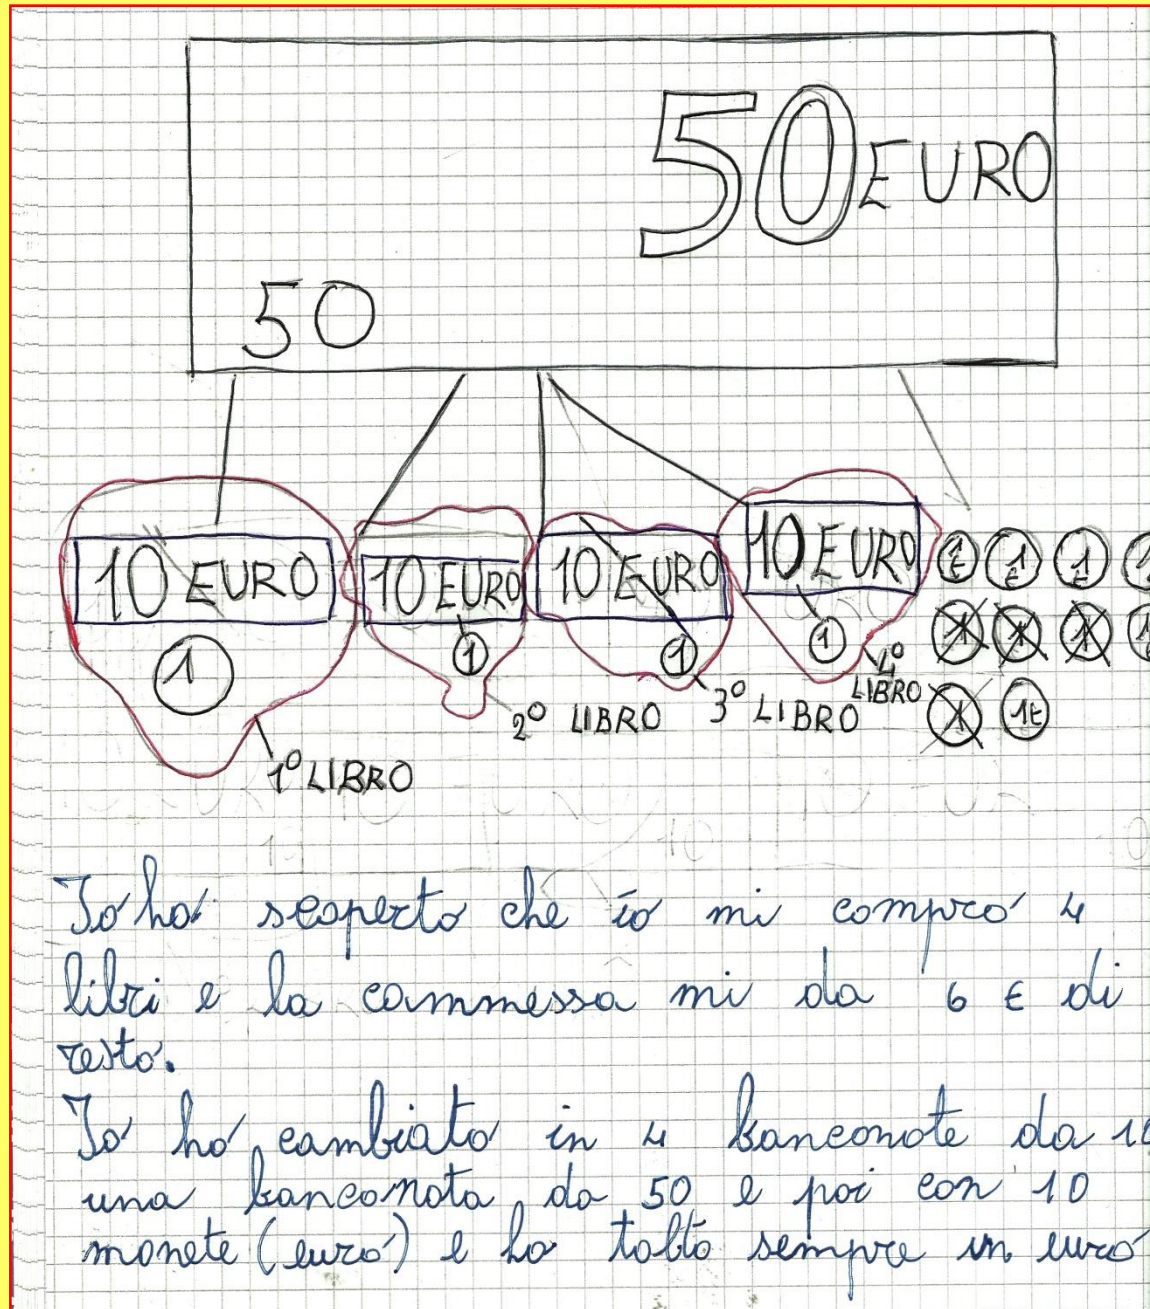 50 EURO
50
10 EURO
10 EURO
10 EURO
10 EURO
1
1
1
1
1€
1€
1€
1
1
1
1
1
1
1€
1° LIBRO
2° LIBRO
3° LIBRO
4° LIBRO
Io ho scoperto che io mi compro 4
libri e la commessa mi da 6 € di
resto.
Io ho cambiato in 4 banconote da 10
una banconota da 50 e poi con 10
monete (euro) e ho tolto sempre un euro